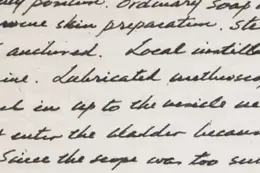 position. Ordinary soap
skin preparation. Ste
anchored. Local instill
ine. Lubricated urethrosco
ed in up to the vesicle ne
t enter the bladder becaus
Since the scope was too